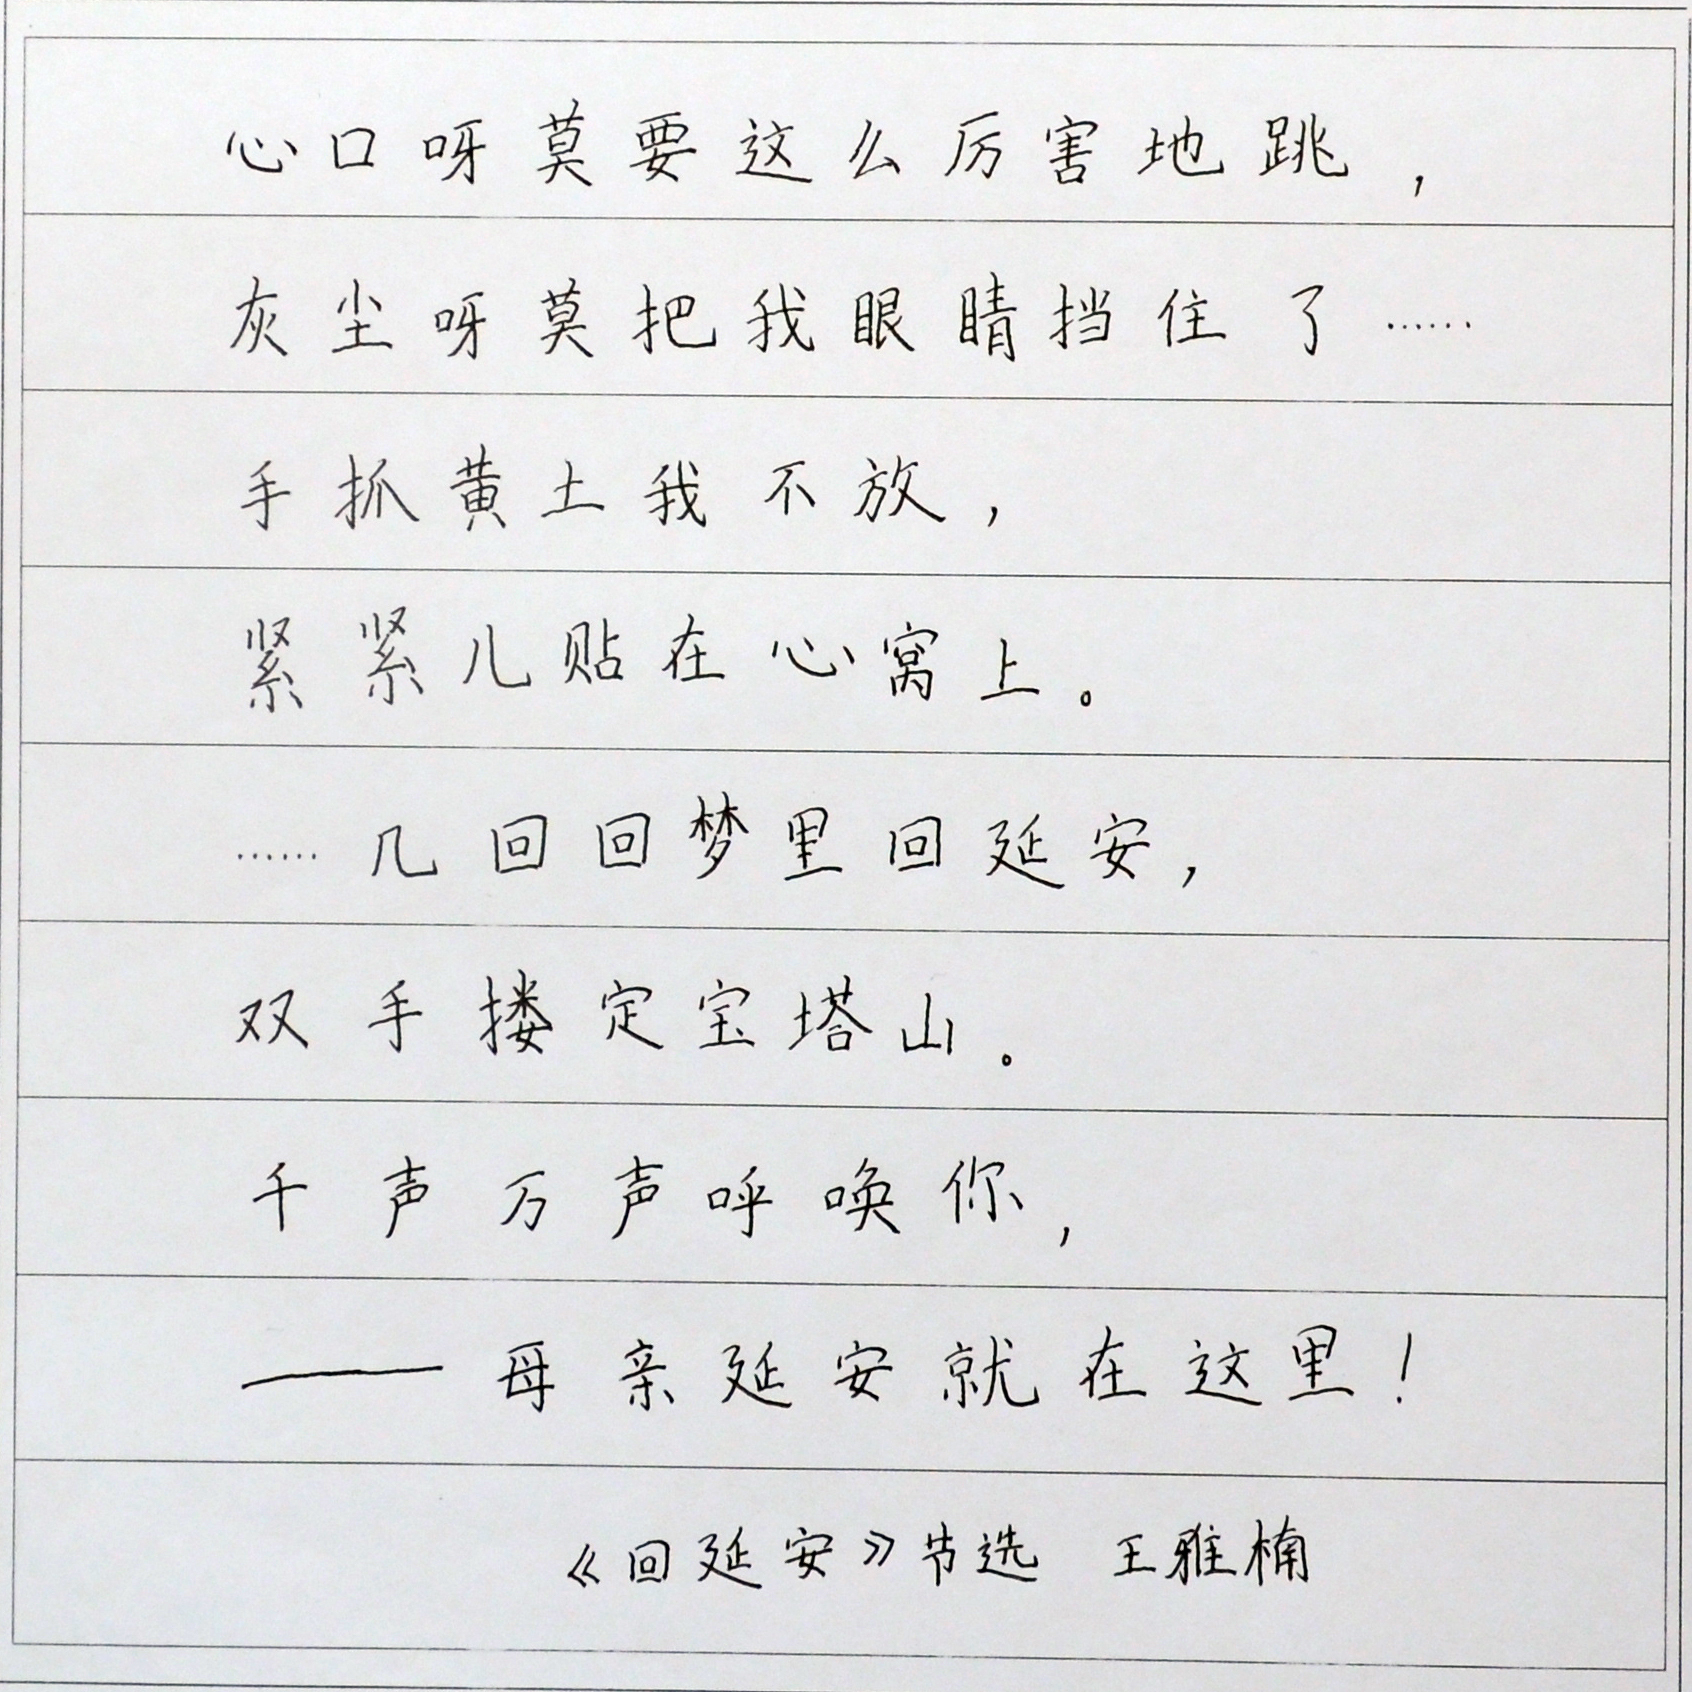 心口呀莫要这么厉害地跳，
灰尘呀莫把我眼睛挡住了……
手抓黄土我不放，
紧紧儿贴在心窝上。
……几回回梦里回延安，
双手搂定宝塔山。
千声万声呼唤你，
——母亲延安就在这里！
《回延安》节选 王雅楠